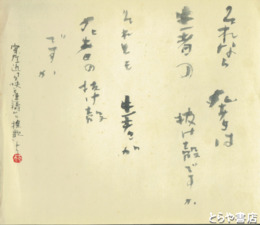 それなら 死者は
生者の 抜け殻ですか
それとも 生者が
死者の抜け殻
ですか
とらや書店